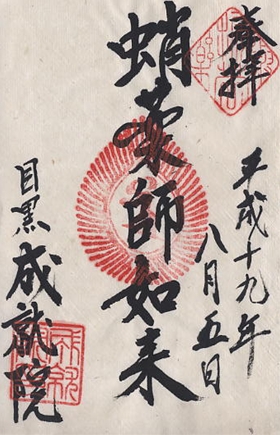 奉拝
平成十九年
八月五日
蛸薬師如来
目黒 成就院